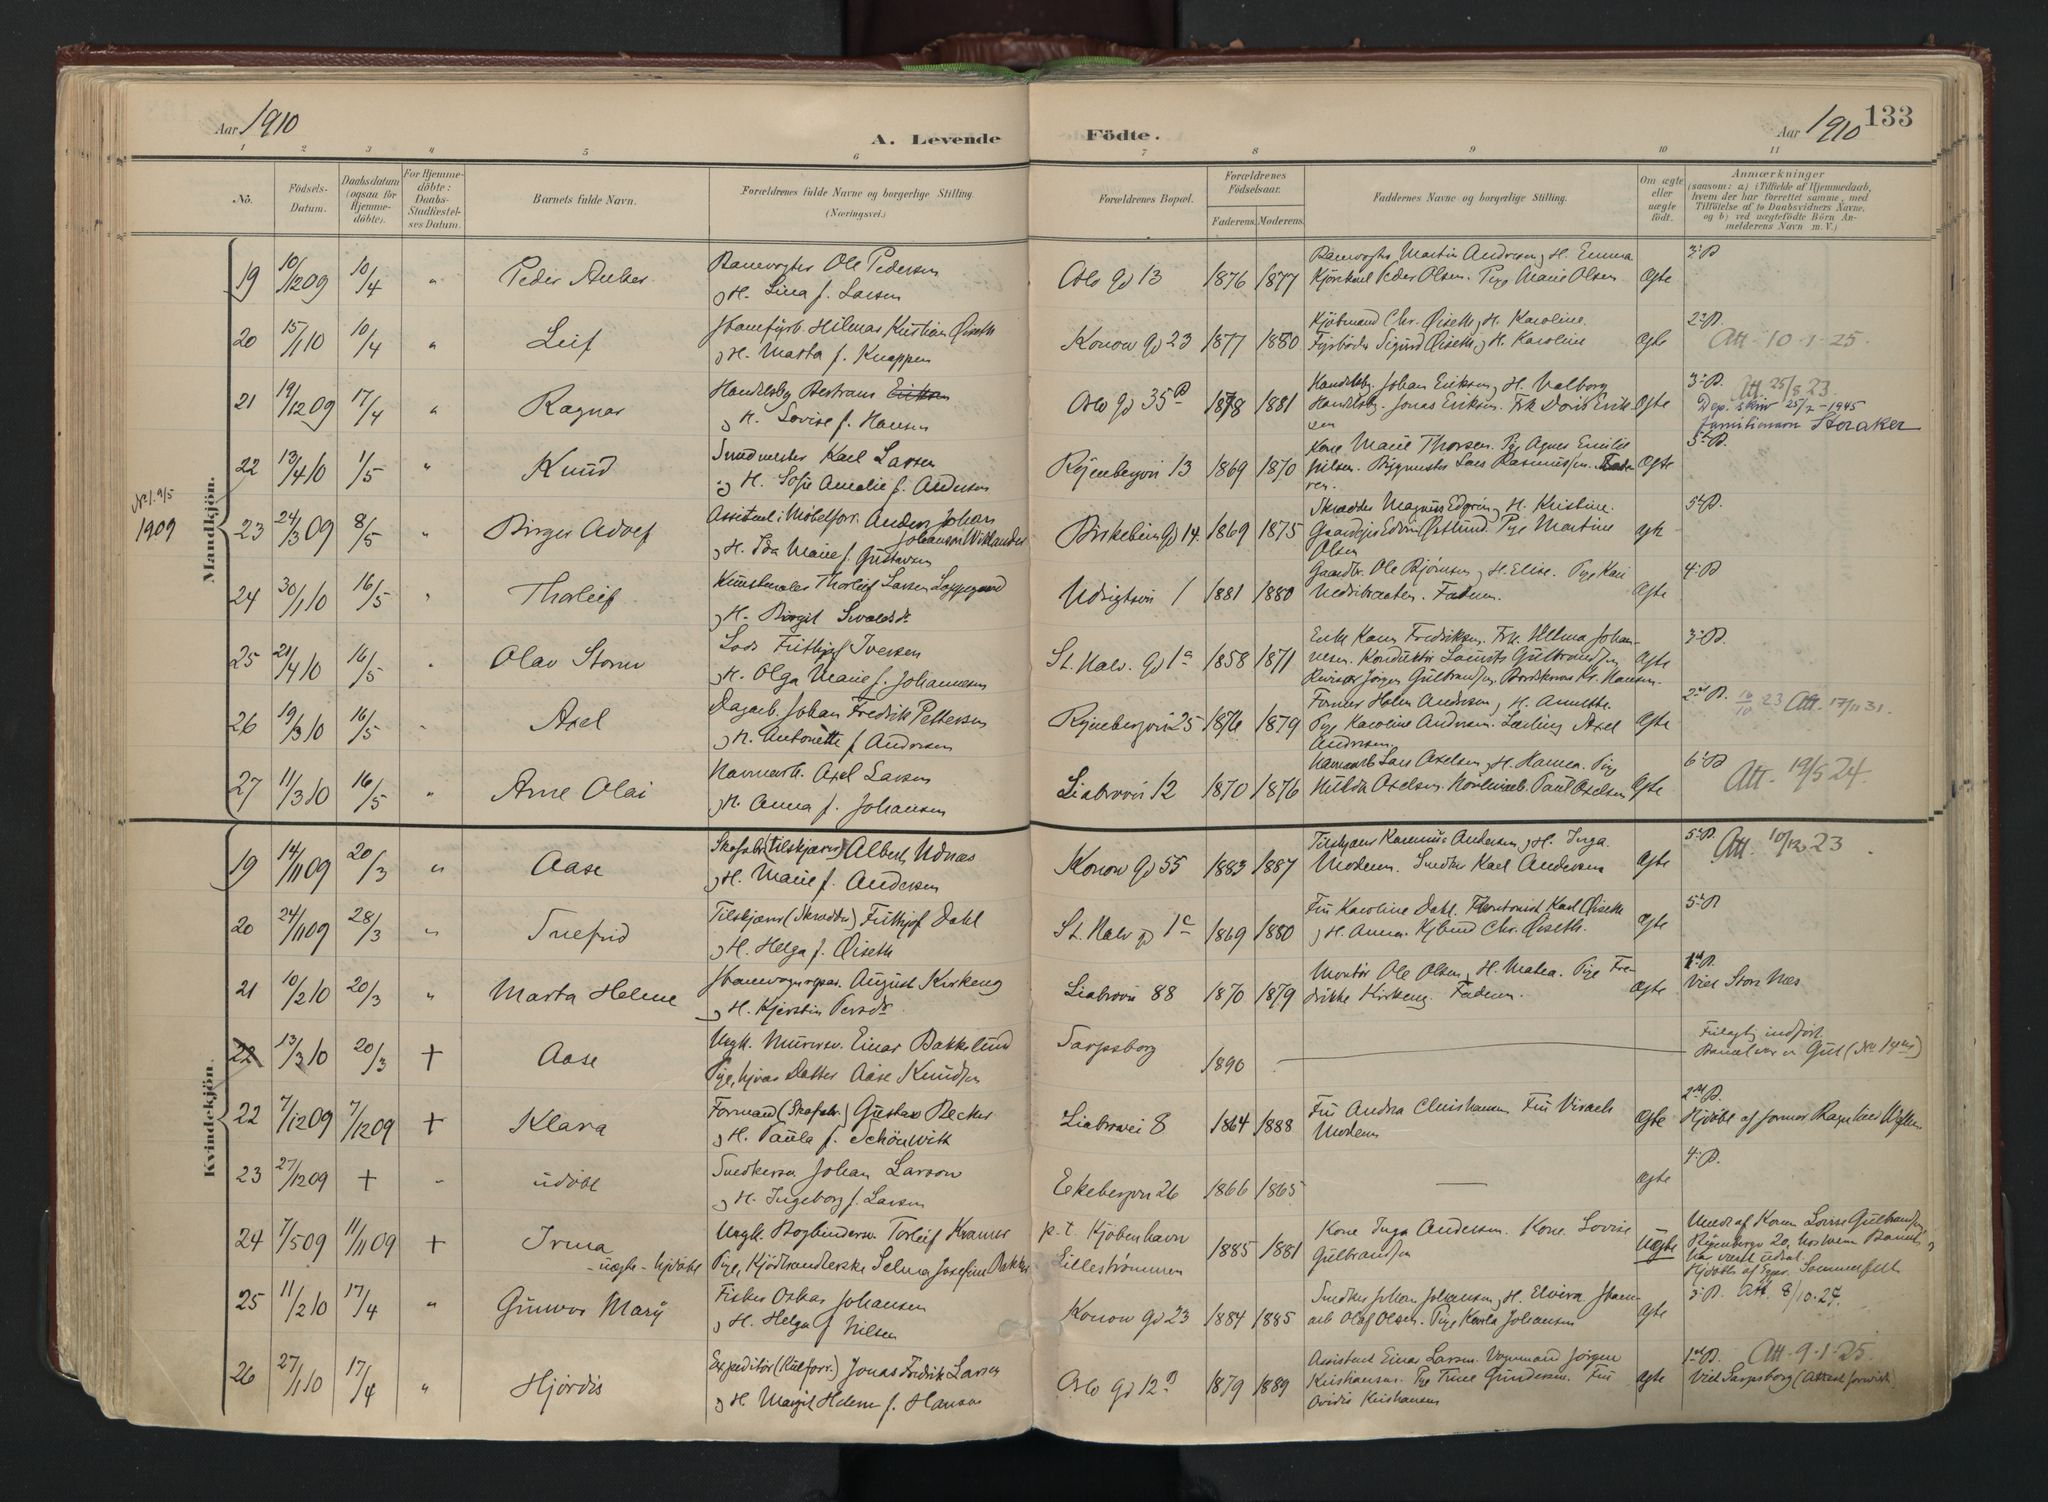 Aar 1910
A. Levende
Födte.
Aar 1910
133
1 2 3 4 5 6 7 8 9 10 11
No.
Födsels-
Datum.
Daabsdatum
(ogsaa for
Hjemme-
döbte).
For Hjemme-
döbte:
Daabs-
Stadfæstel-
ses Datum.
Barnets fulde Navn.
Forældrenes fulde Navne og borgerlige Stilling.
(Næringsvei.)
Forældrenes Bopæl.
Forældrenes
Födselsaar.
Faderens. Moderens.
Faddernes Navne og borgerlige Stilling.
Om ægte
eller
uægte
födt.
Anmærkninger
(saasom: a) i Tilfælde af Hjemmedaab,
hvem der har forrettet samme, med
Tilföielse af to Daabsvidners Navne,
og b) ved uægtefödte Börn An-
melderens Navn m. V.)
Mandkjön.
19 10/12 09 10/4 " Peder Anker
Banevogter Ole Pedersen
og H. Lina f. Larsen
Oslo gd 13 1876 1877
Banevogter Martin Andresen og H. Emma
Kjörekarl Peder Olsen. Pige Marie Olsen
Ægte 3. B
20 15/1 10 10/4 " Leif
Hilmar Kristian Øiseth
og H. Marta f. Knappen
Konow gd 23 1877 1880
Kjöbmand Chr. Øiseth og H. Karoline.
Fyrböder Sigurd Øiseth og H. Karoline
Ægte 2. B. Att. 10-1-25.
21 19/12 09 17/4 " Ragnar
Handelsbg Bertrans Eriksen
og H. Lovise f. Hansen
Oslo gd 35 B 1878 1881
Handelsbg. Johan Eriksen og H. Valborg
Handelsbg. Jonas Eriksen. Frk Doris Erik-
sen
Ægte 3. B. Att 25/8 23.
Dep. skriv 25/7-1945
familienavn Storaker
22 13/4 10 1/5 " Knud
Smedmester Karl Larsen
og H. Sofie Amalie f. Andersen
Ryenbergvei 13 1869 1870
Kone Marie Thorsen. Pige Agnes Emilie
Nilsen. Bygmester Lars Rasmussen. Fade-
ren.
Ægte 5. B.
No 1. 9/5
1909
23 24/3 09 8/5 " Birger Adolf
Assistent i Möbelforr. Anders Johan
Johansen Wiklander
og H. Ida Marie f. Gustavsen
Birkebein gd 14. 1869 1875
Skrædder Magnus Edgren og H. Kristine.
Gaardgut Edvin Østlund. Pige Martine
Olsen
ægte 5. B.
24 30/1 10 16/5 " Thorleif
Kunstmaler Thorleif Larsen Loppegaard
og H. Birgit Sivaldsdr.
Udsigtsvei 1 1881 1880
Gaardbr. Ole Björnsen og H. Elise. Pige Kari
Nedrebraaten. Faderen.
Ægte 4. B
25 21/4 10 16/5 " Olav Storm
Lods Frithjof Iversen
og H. Olga Marie f. Johannesen
St. Halv. gd 1a 1858 1871
Enke Karen Fredriksen. Frk. Wilma Johan-
nesen. Konduktör Laurits Gulbrandsen
Revisor Jörgen Gulbrandsen. Kr. Hansen.
Ægte 3. B
26 19/3 10 16/5 " Axel
Dagarb. Johan Fredrik Pettersen
og H. Antonette f Andersen
Ryenbergvein 25 1876 1879
Former Holm Andersen og H. Anette.
Pige Karoline Andersen. Lærling Axel
Andersen
Ægte 2. B. 10/10 23 Att. 17/11 31.
27 11/3 10 16/5 " Arne Olai
Havnearb. Axel Larsen
og H. Anna f. Johansen
Liabrovei 12 1870 1876
Havnearb Lars Axelsen og H. Hanna. Pige
Hilda Axelsen. Paul Axelsen
Ægte 6. B Att. 19/5 24.
Kvindekjön.
19 14/11 09 20/3 " Aase
Skofabr. (tilskjærer) Albert Udnæs
og H. Marie f. Andersen
Konow gd 55 1883 1887
Tilskjærer Rasmus Andersen og H. Inga.
Moderen. Snedker Karl Andersen
Ægte 5. B. Att. 10/12 23
20 24/11 09 28/3 " Snefrid
Tilskjærer (Skrædder) Frithjof Dahl
og H. Helga f. Øiseth
St. Halv gd 1c 1869 1880
Fru Karoline Dahl. Karl Øiseth
og H. Anna. Kjöbmd Chr. Øiseth.
Ægte 5. B
21 10/2 10 20/3 " Marta Helene
August Kirkeng
og H. Kjerstin Persdr.
Liabrovei 88 1870 1879
Montör Ole Olsen og H. Matea. Pige Fre-
drikke Kirkeng. Faderen.
Ægte 1. B.
Viet Stor Næs
22 13/3 10 20/3 + Aase
Ungk. Murersv. Einar Bakkelund
Pige, hjvær. Datter Aase Knudsen
Sarpsborg 1890
Feilagtig indfört.
Barnet var en Gut (No 14)
22 7/12 09 7/12 09 + Klara
Formand (Skofabr.) Gustav Becker
og H. Paula f. Schönwitz
Liabrovei 8 1864 1888
Fru Andrea Christiansen Fru
Moderen
Ægte 2. B.
Hjdöbt af jormor
23 27/12 09 + " udöbt
Snedkersv Johan Larsson
og H. Ingeborg f. Larsen
Ekebergvei 26 1866 1865
ægte 4. B.
24 7/5 09 11/11 09 + Irma
- uægte - hjdöbt
Ungk. Bogbindersv. Torleif Kramer
Pige, Kjödhandlerske Selma Josefine Bakke
p.t. Kjöbenhavn
Lillestrømmen
1885 1881
Kone Inga Andersen. Kone Lovise
Gulbrandsen
Uægte
Anmeldt af Konen Lovise Gulbrandsen
Ryenbergv 20, hos hvem Barnet
har været udsat.
Hjdöbt af Sommerfeldt
25 11/2 10 17/4 " Gunvor Mary
Fisker Oskar Johansen
og H. Helga f Nilsen
Konow gd 23 1884 1885
Snedker Johan Johansen og H. Elvira.
arb Olaf Olsen. Pige Karla Johansen
Ægte 3. B. Att. 8/10-27.
26 27/1 10 17/4 " Hjördis
Expeditör (Kulforr.) Jonas Fredrik Larsen
og H. Margit Helene f. Hansen
Oslo gd 12 B 1879 1889
Assistent Einar Larsen. Vognmand Jörgen
Kristiansen. Pige Trine Gundersen. Fru
Ovidia Kristiansen
ægte 1. B. Att. 9-1-25.
Viet Sarpsborg (Attest forevist)